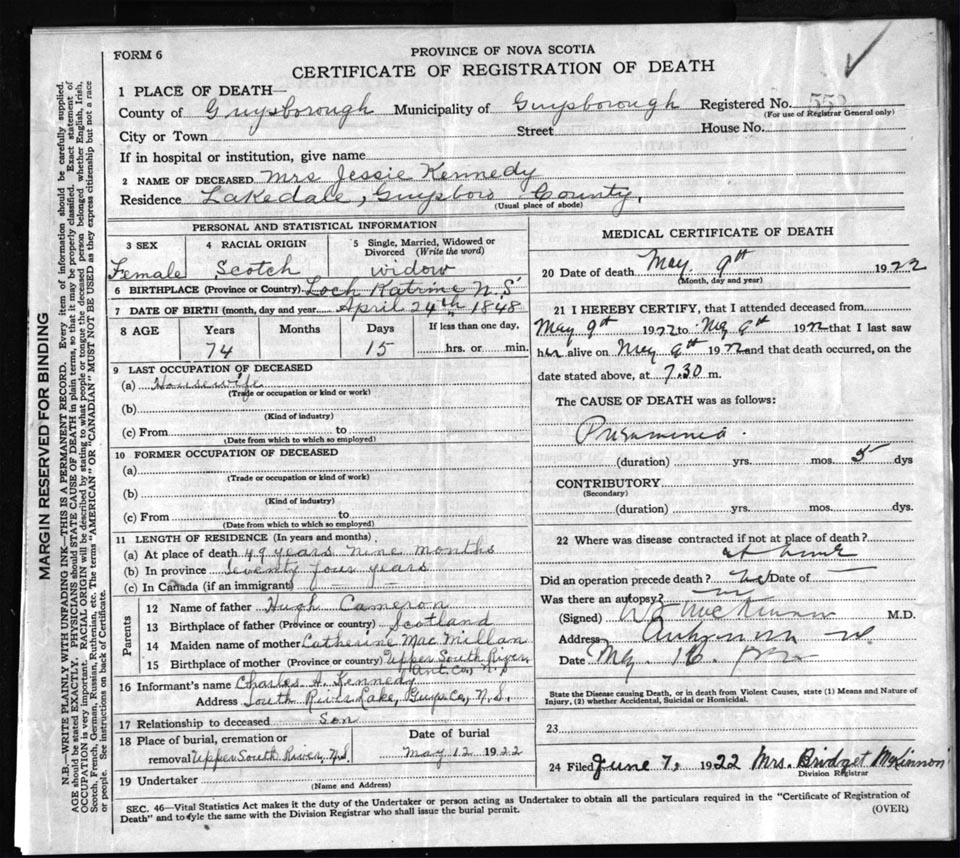 FORM 6
PROVINCE OF NOVA SCOTIA
CERTIFICATE OF REGISTRATION OF DEATH
1 PLACE OF DEATH—
County of Guysborough Municipality of Guysborough Registered No. 552
(For use of Registrar General only)
City or Town Street House No.
If in hospital or institution, give name
2 NAME OF DECEASED Mrs Jessie Kennedy
Residence Lakedale, Guysboro County,
(Usual place of abode)
PERSONAL AND STATISTICAL INFORMATION
3 SEX 4 RACIAL ORIGIN 5 Single, Married, Widowed or Divorced (Write the word)
Female Scotch widow
6 BIRTHPLACE (Province or Country) Loch Katrine N.S
7 DATE OF BIRTH (month, day and year) April 24th 1848
8 AGE Years Months Days If less than one day,
74 15 hrs. or min.
9 LAST OCCUPATION OF DECEASED
(a) Housewife
(Trade or occupation or kind or work)
(b)
(Kind of industry)
(c) From to
(Date from which to which so employed)
10 FORMER OCCUPATION OF DECEASED
(a)
(Trade or occupation or kind or work)
(b)
(Kind of industry)
(c) From to
(Date from which to which so employed)
11 LENGTH OF RESIDENCE (In years and months)
(a) At place of death 49 years nine months
(b) In province Seventy four years
(c) In Canada (if an immigrant)
Parents
12 Name of father Hugh Cameron
13 Birthplace of father (Province or country) Scotland
14 Maiden name of mother Catherine MacMillan
15 Birthplace of mother (Province or country) Upper South River
Ant. Co, N.S
16 Informant's name Charles A. Kennedy
Address South River Lake, Guys Co, N.S.
17 Relationship to deceased Son
18 Place of burial, cremation or Date of burial
removal Upper South River, N.S. May 12 1922
19 Undertaker
(Name and Address)
MEDICAL CERTIFICATE OF DEATH
20 Date of death May 9th 1922
(Month, day and year)
21 I HEREBY CERTIFY, that I attended deceased from
May 9th 1922 to May 9th 1922 that I last saw
her alive on May 9th 1922 and that death occurred, on the
date stated above, at 7.30 m.
The CAUSE OF DEATH was as follows:
Pneumonia
(duration) yrs. mos. 5 dys
CONTRIBUTORY
(Secondary)
(duration) yrs. mos. dys.
22 Where was disease contracted if not at place of death?
at home
Did an operation precede death? no Date of —
Was there an autopsy? no
(Signed) M.D.
Address Antigonish
Date May. 16.
State the Disease causing Death, or in death from Violent Causes, state (1) Means and Nature of
Injury, (2) whether Accidental, Suicidal or Homicidal.
23
24 Filed June 7, 1922 Mrs. Bridget McKinnon
Division Registrar
SEC. 46—Vital Statistics Act makes it the duty of the Undertaker or person acting as Undertaker to obtain all the particulars required in the "Certificate of Registration of
Death" and to fyle the same with the Division Registrar who shall issue the burial permit. (OVER)
MARGIN RESERVED FOR BINDING
N.B.—WRITE PLAINLY WITH UNFADING INK—THIS IS A PERMANENT RECORD. Every item of information should be carefully supplied.
AGE should be stated EXACTLY. PHYSICIANS should STATE CAUSE OF DEATH in plain terms, so that it may be properly classified. Exact statement of
OCCUPATION is very important. RACIAL ORIGIN will be described by stating to what people or tongue the deceased person belonged whether English, Irish,
Scotch, French, German, Russian, Ruthenian, etc. The terms "AMERICAN" OR "CANADIAN" MUST NOT BE USED as they express citizenship but not a race
or people. See instructions on back of Certificate.